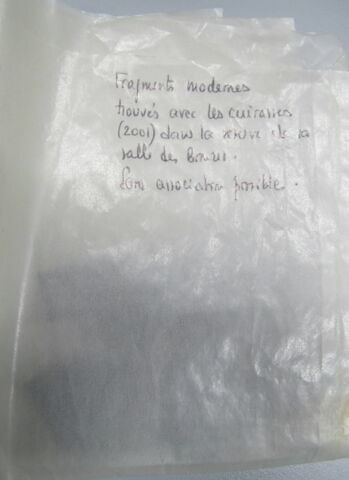 Fragments modernes
trouvés avec les cuirasses
(2001) dans la réserve de la
salle des Bronzes.
Sans association possible.